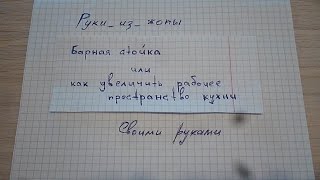 Руки_из_жопы
Барная стойка
или
как увеличить рабочее
пространство кухни
Своими руками